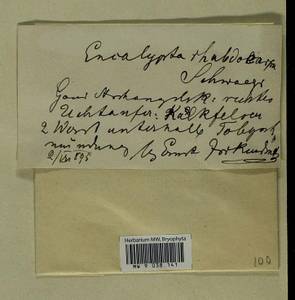 Encalypta rhabdocarpa
Schwaegr
Gouv Archangelsk: rechtes
Uchtaufer: Kalkfelsen
2 Werst unterhalb
mündung leg Ernst
Herbarium MW, Bryophyta
MW 9 038 141
100